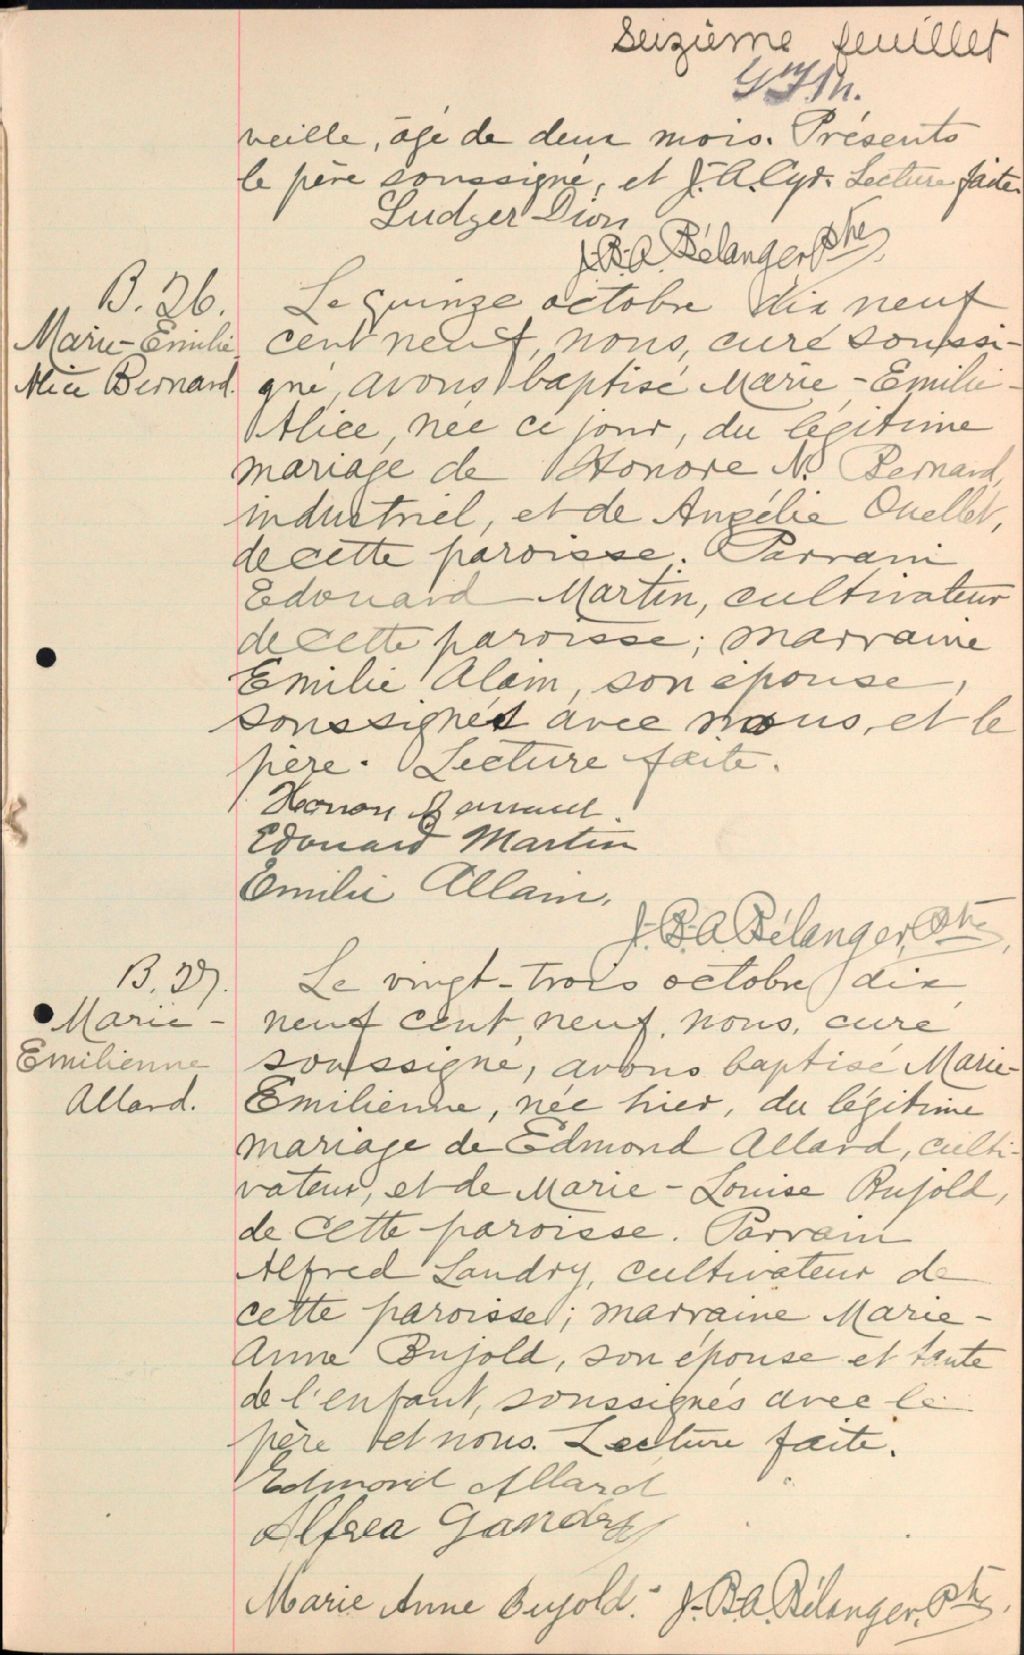 Seizième feuillet
veille, âgé de deux mois. Présents
le père soussigné, et J.-A. Cyr. Lecture faite.
Ludger Dion
J.-B.-A. Bélanger, Ptre,
B. 26.
Marie-Emilie
Alice Bernard.
Le quinze octobre dix neuf
cent neuf, nous, curé soussi-
gné, avons baptisé Marie-Emilie-
Alice, née ce jour, du légitime
mariage de Honoré N. Bernard,
industriel, et de Angélie Ouellet,
de cette paroisse. Parrain
Edouard Martin, cultivateur
de cette paroisse; marraine
Emilie Alain, son épouse,
soussignés avec nous, et le
père. Lecture faite.
Bernard.
Edouard Martin
Emilie Allain.
J.-B.-A. Bélanger, Ptre,
B. 27.
Marie-
Emilienne
Allard.
Le vingt-trois octobre dix
neuf cent neuf, nous, curé
soussigné, avons baptisé Marie-
Emilienne, née hier, du légitime
mariage de Edmond Allard, culti-
vateur, et de Marie-Louise Bujold,
de cette paroisse. Parrain
Alfred Landry, cultivateur de
cette paroisse; marraine Marie-
Anne Bujold, son épouse et tante
de l'enfant, soussignés avec le
père et nous. Lecture faite.
Edmond Allard
Marie Anne Bujold. J.-B.-A. Bélanger, Ptre,